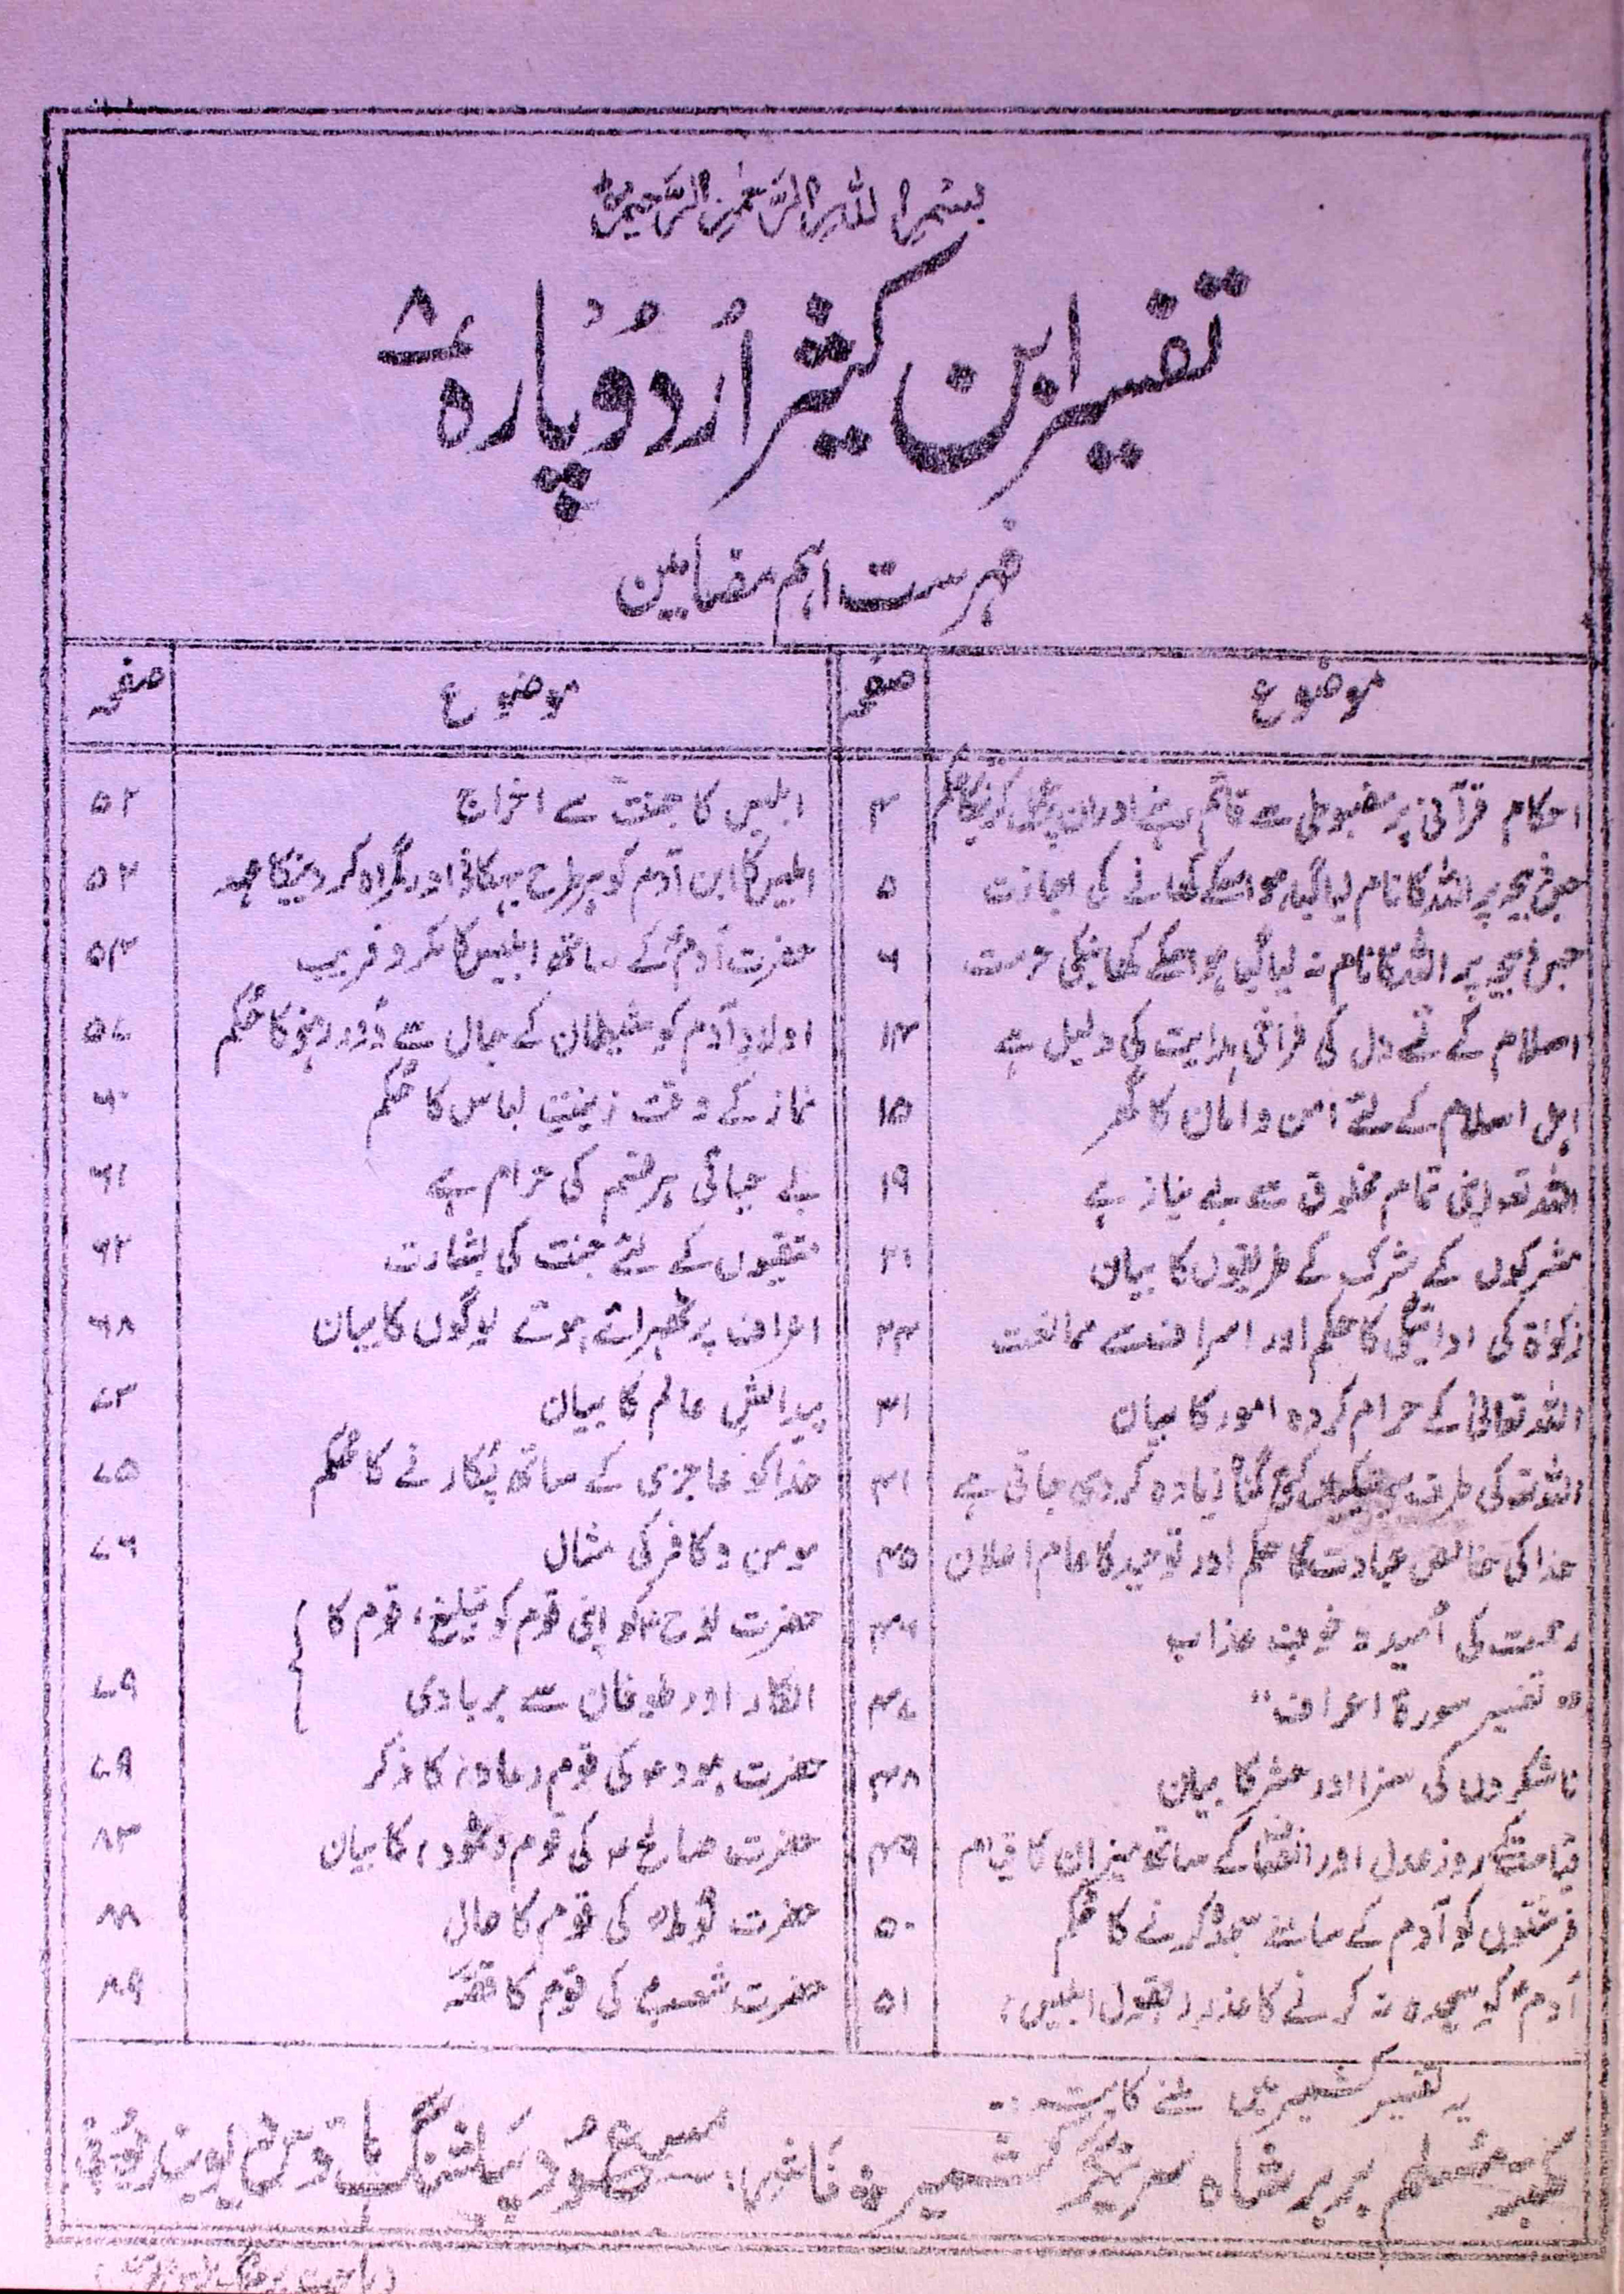 بسم اللہ الرحمن الرحیم
تفسیر ابن کثیر اُردو پارہ ۸
فہرست اہم مضامین
موضوع صفحہ
احکام قرآنی پر مضبوطی سے قائم رہنے اور ان پر عمل کرنیکا حکم ۴
جس ذبیحہ پر اللہ کا نام لیا گیا ہو اسکے کھانے کی اجازت ۵
جس ذبیحہ پر اللہ کا نام نہ لیا گیا ہو اسکے کھانیکی حرمت ۶
اسلام کے لئے دل کی فراخی ہدایت کی دلیل ہے ۱۴
اہل اسلام کے لئے امن و امان کا گھر ۱۵
اللہ تعالیٰ تمام مخلوق سے بے نیاز ہے ۱۹
مشرکوں کے شرک کے طریقوں کا بیان ۲۱
زکوٰۃ کی ادائیگی کا حکم اور اسراف سے ممانعت ۲۴
اللہ تعالیٰ کے حرام کردہ امور کا بیان ۳۱
اللہ تعٰ کی طرف سے نیکیاں کئی گنا زیادہ کر دی جاتی ہے ۴۱
خدا کی خالص عبادت کا حکم اور توحید کا عام اعلان ۴۵
رحمت کی اُمید و خوف عذاب ۴۶
"تفسیر سورۃ اعراف" ۴۷
ناشکروں کی سزا اور حشر کا بیان ۴۸
قیامت کے روز عدل اور انصاف کے ساتھ میزان کا قیام ۴۹
فرشتوں کو آدم کے سامنے سجدہ کرنے کا حکم ۵۰
آدمؑ کو سجدہ نہ کرنے کا عذر (بقول ابلیس) ۵۱
موضوع صفحہ
ابلیس کا جنت سے اخراج ۵۲
ابلیس کا ابن آدم کو ہر طرح بہکانے اور گمراہ کر دینیکا عہد ۵۲
حضرت آدمؑ کے ساتھ ابلیس کا مکر و فریب ۵۳
اولاد آدم کو شیطان کے جال سے دُور رہنے کا حکم ۵۷
نماز کے وقت زینتِ لباس کا حکم ۶۰
بے حیائی ہر قسم کی حرام ہے ۶۱
متقیوں کے لئے جنت کی بشارت ۶۲
اعراف پر ٹھیرائے ہوئے لوگوں کا بیان ۶۸
پیدائش عالم کا بیان ۷۳
خدا کو عاجزی کے ساتھ پکارنے کا حکم ۷۵
مومن و کافر کی مثال ۷۶
حضرت نوحؑ کو اپنی قوم کو تبلیغ، قوم کا
انکار اور طوفان سے بربادی ۷۹
حضرت ہودؑ کی قوم (عاد) کا ذکر ۷۹
حضرت صالحؑ کی قوم (ثمود) کا بیان ۸۳
حضرت لوطؑ کی قوم کا حال ۸۸
حضرت شعیبؑ کی قوم کا قصّہ ۸۹
یہ تفسیر کشمیر میں ملنے کا پتہ :-
مکتبہ مسلم بربر شاہ سرینگر کشمیر ناشر: مسعود پبلشنگ ہاؤس دیوبند یوپی